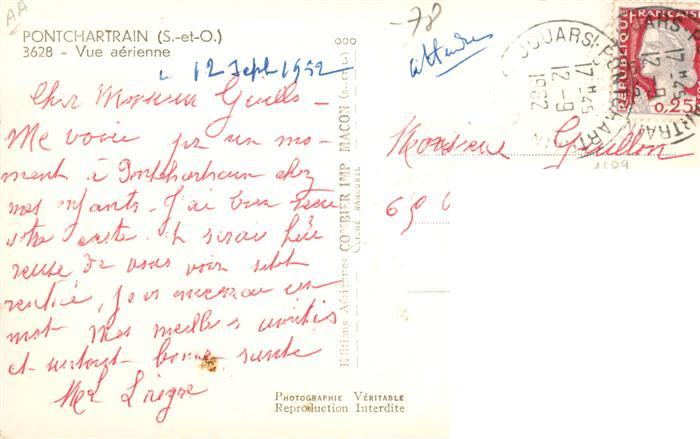 AA
PONTCHARTRAIN (S.-et-O.)
3628 - Vue aérienne
12 Sept 1962
Cher Monsieur
Me voici pr un mo-
ment à Pontchartrain chez
mes enfants. J'ai bien reçu
votre carte. serais heu
reuse de vous voir sitôt
rentrée, Je vs enverrai un
mot Mes meilleurs amitiés
et surtout bonne santé
Editions Aériennes COMBIER IMP. MACON (S.-et-L.)
CLICHÉ RANCUREL
PHOTOGRAPHIE VÉRITABLE
Reproduction Interdite
-78
JOUARS-PONTCHARTRAIN
17H45
12-9
1962
REPUBLIQUE FRANÇAISE
0,25
Monsieur Guillon